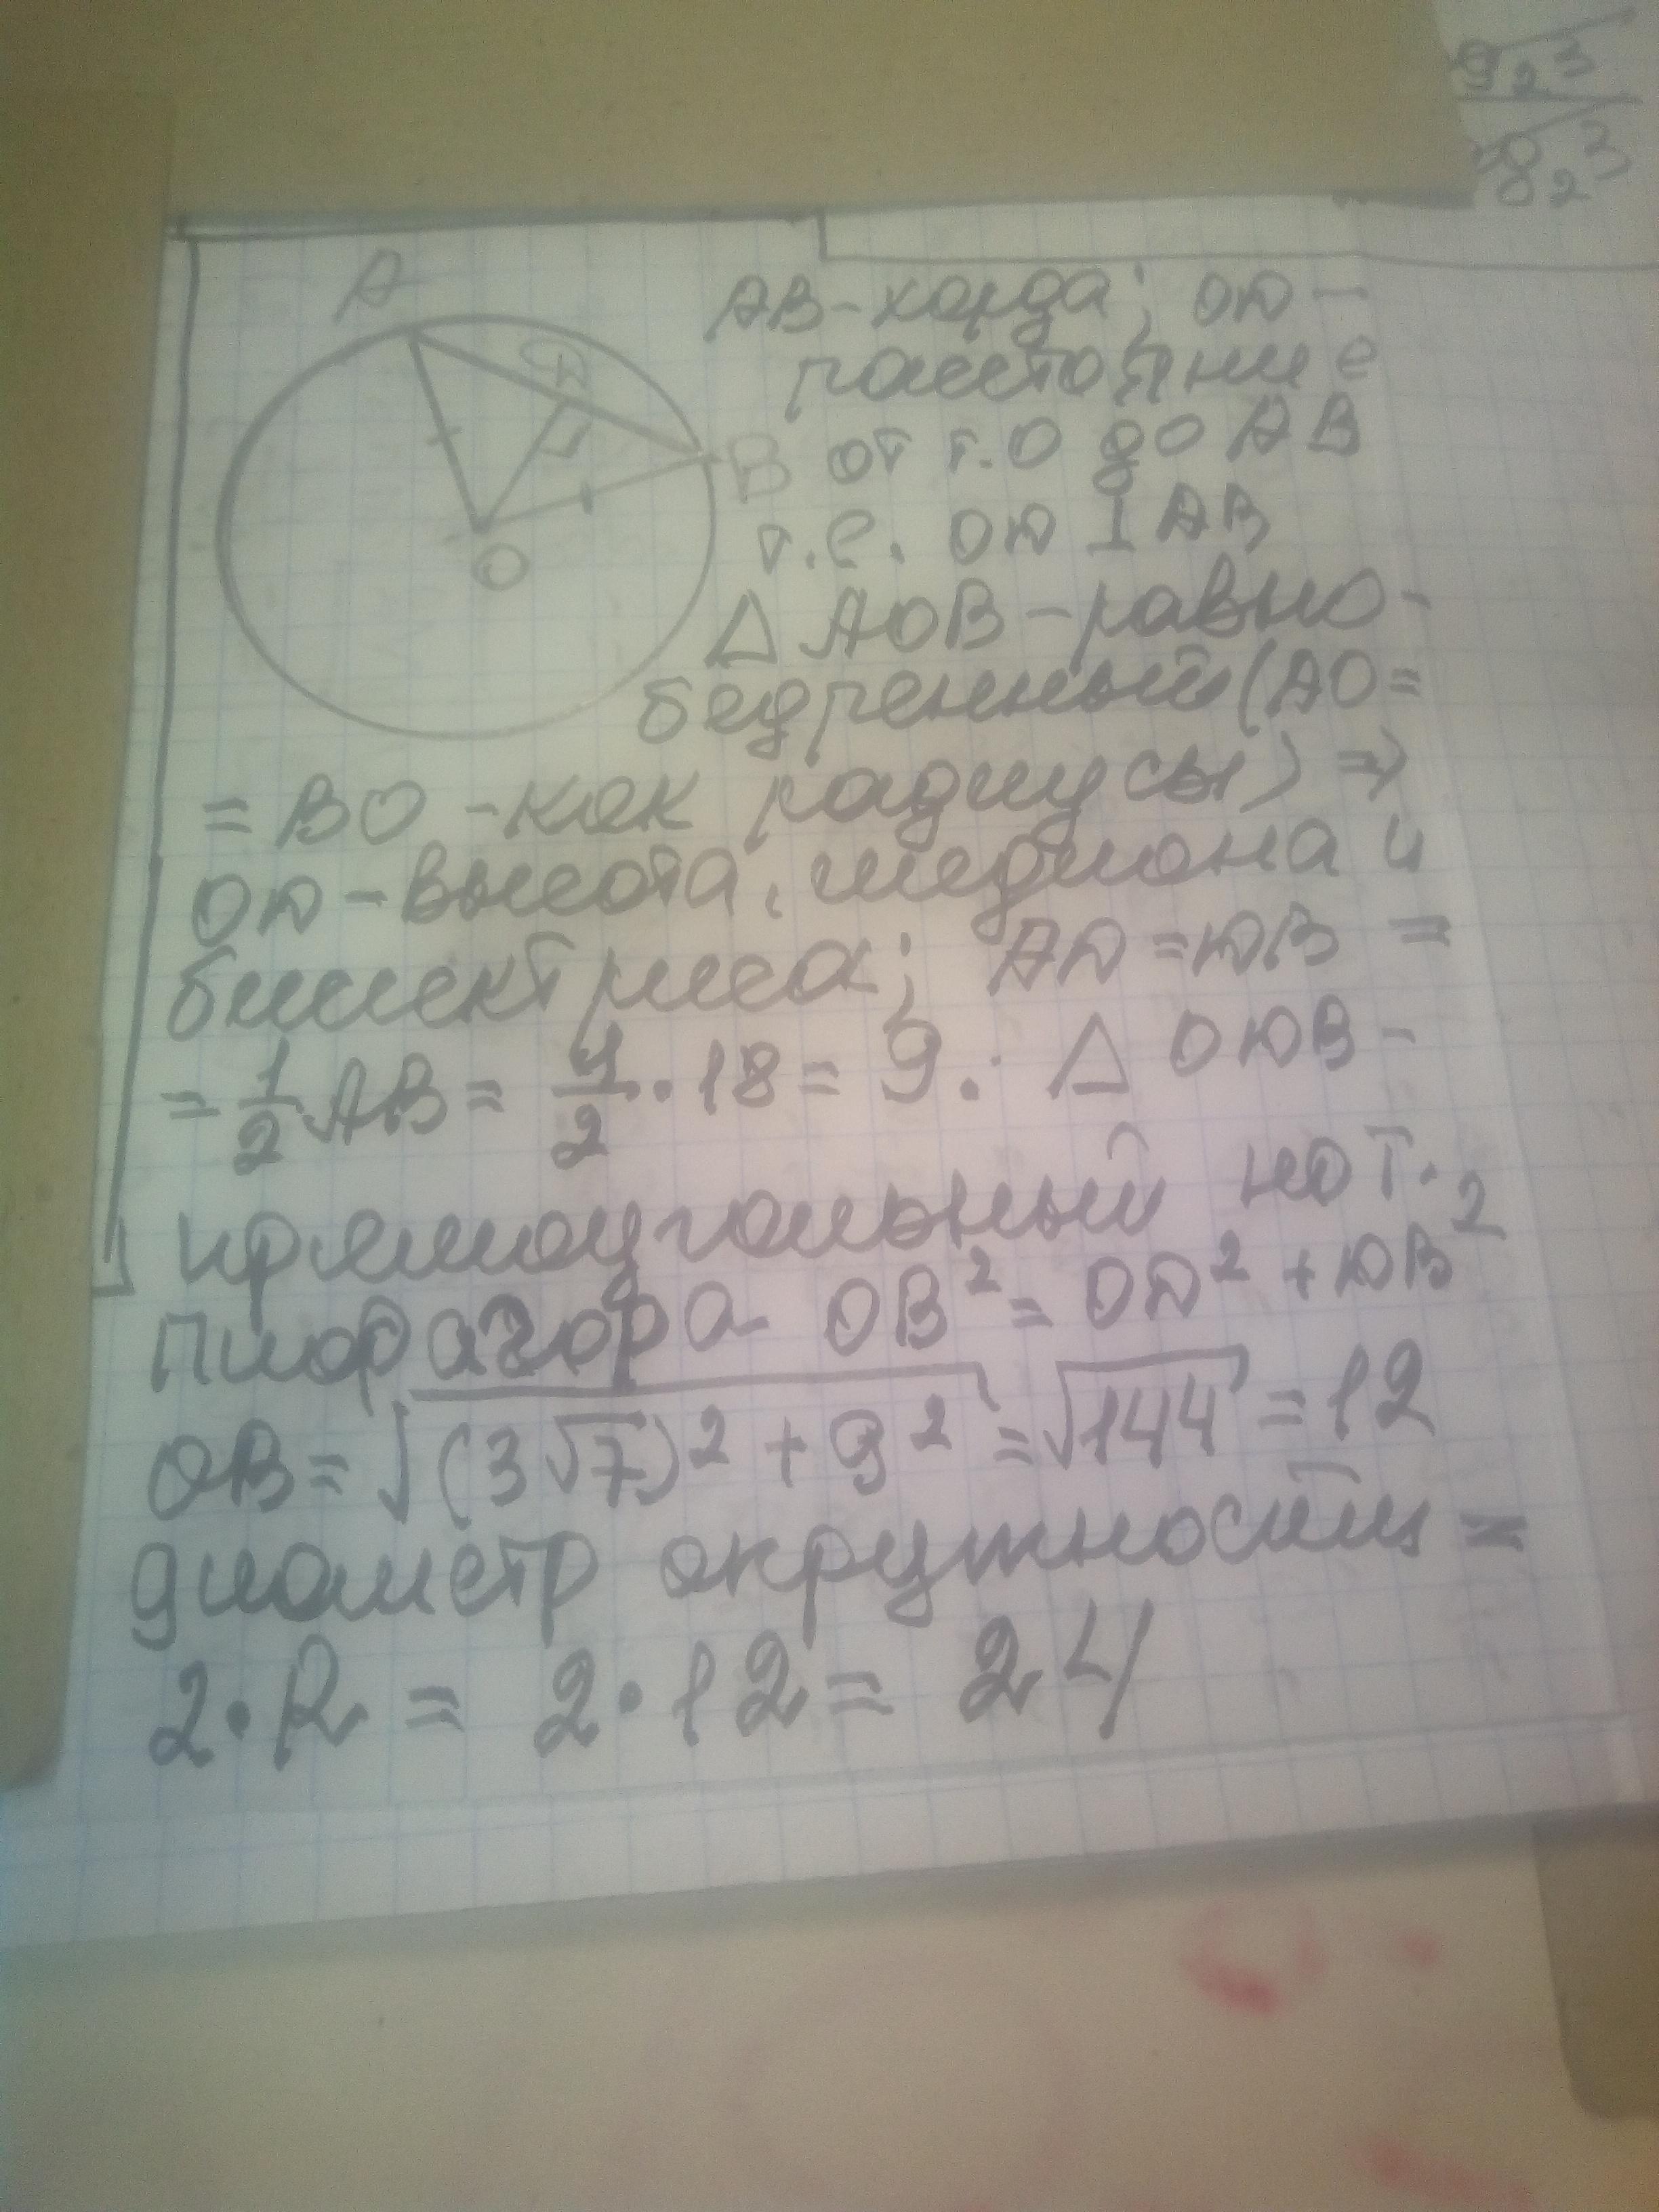 9 2 3
8 2 3
A
D
B
O
AB - хорда; OD -
расстояние
от т. O до AB
т.е. OD ⊥ AB
△ AOB - равно-
бедренный (AO =
= BO - как радиусы) ⇒
OD - высота, медиана и
биссектриса; AD = DB =
= 1/2 AB = 1/2 · 18 = 9. △ ODB -
прямоугольный по т.
Пифагора OB² = OD² + DB²
OB = √((3√7)² + 9²) = √144 = 12
диаметр окружности =
2 · R = 2 · 12 = 24